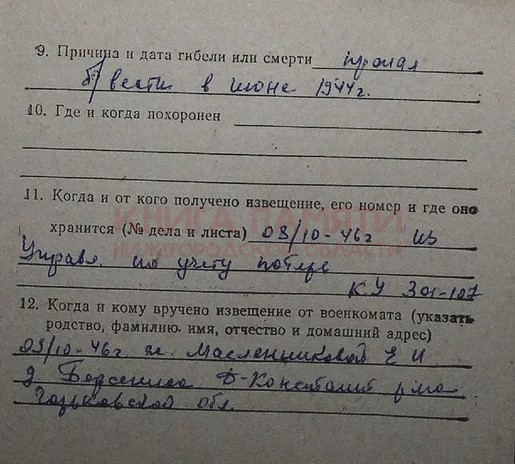 9. Причина и дата гибели или смерти пропал
б/вести в июне 1944 г.
10. Где и когда похоронен
11. Когда и от кого получено извещение, его номер и где оно
хранится (№ дела и листа) 03/10-46 г из
Управл. по учету потерь
КУ 301-107
КНИГА ПАМЯТИ
НИЖЕГОРОДСКОЙ ОБЛАСТИ
12. Когда и кому вручено извещение от военкомата (указать
родство, фамилию, имя, отчество и домашний адрес)
03/10-46 г ж. Масленниковой Е И
д Д-Константин р-на
Горьковской обл.